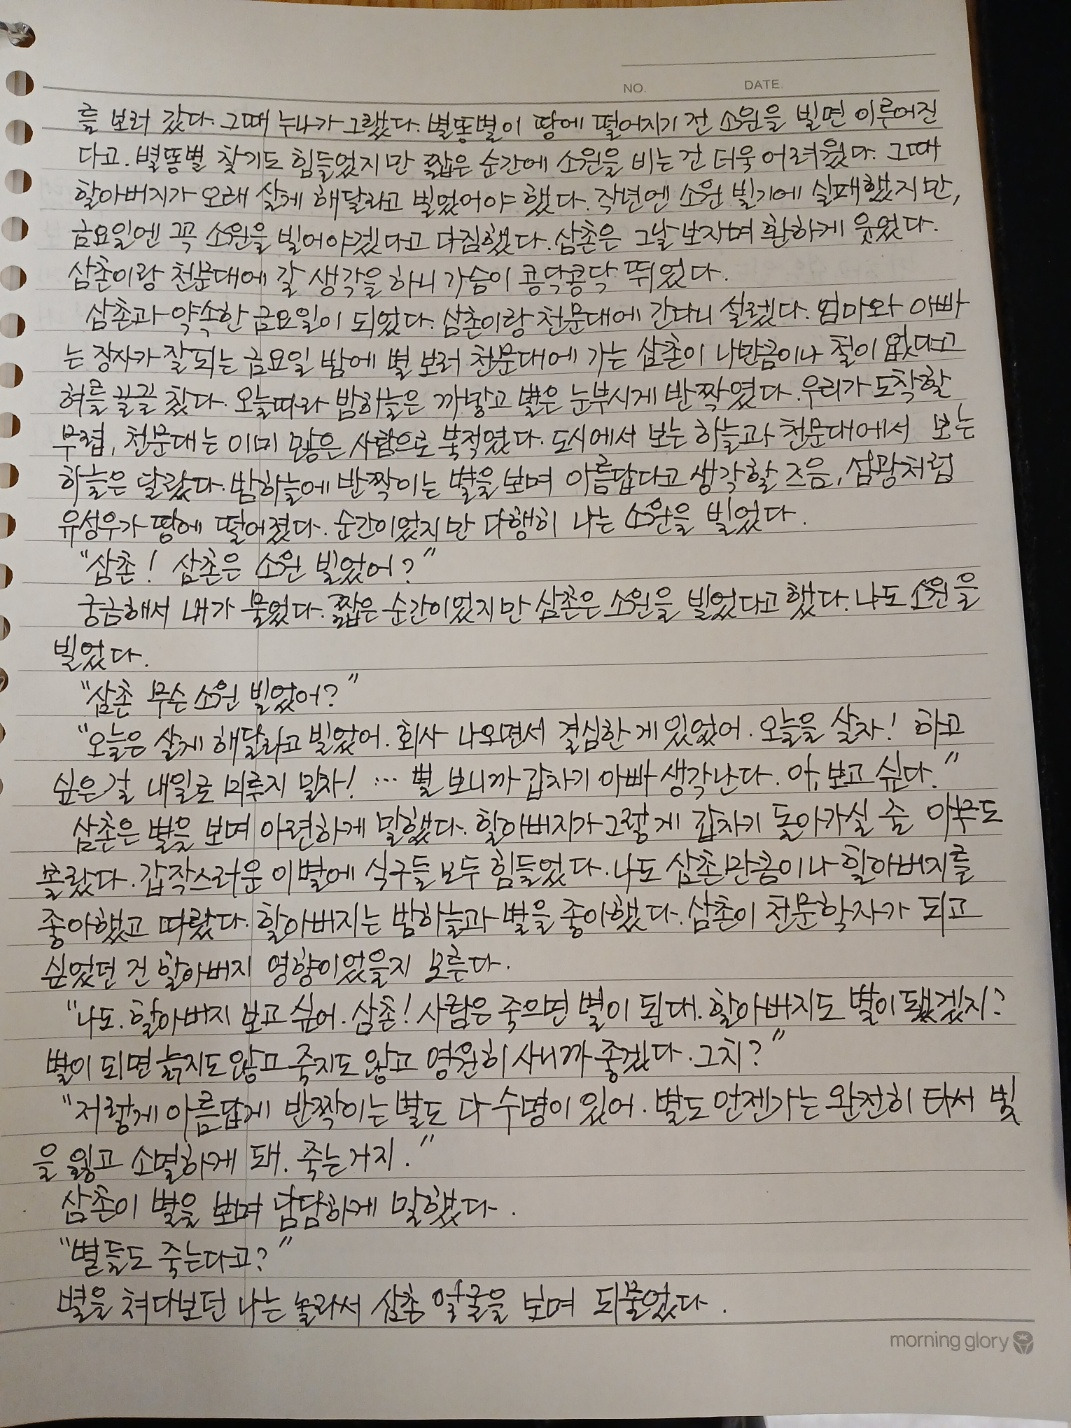 NO. DATE
를 보러 갔다. 그때 누나가 그랬다. 별똥별이 땅에 떨어지기 전 소원을 빌면 이루어진
다고. 별똥별 찾기도 힘들었지만 짧은 순간에 소원을 비는 건 더욱 어려웠다. 그때
할아버지가 오래 살게 해달라고 빌었어야 했다. 작년엔 소원 빌기에 실패했지만,
금요일엔 꼭 소원을 빌어야겠다고 다짐했다. 삼촌은 그날 보자며 환하게 웃었다.
삼촌이랑 천문대에 갈 생각을 하니 가슴이 콩닥콩닥 뛰었다.
삼촌과 약속한 금요일이 되었다. 삼촌이랑 천문대에 간다니 설렜다. 엄마와 아빠
는 장사가 잘되는 금요일 밤에 별 보러 천문대에 가는 삼촌이 나만큼이나 철이 없다고
혀를 끌끌 찼다. 오늘따라 밤하늘은 까맣고 별은 눈부시게 반짝였다. 우리가 도착할
무렵, 천문대는 이미 많은 사람으로 북적였다. 도시에서 보는 하늘과 천문대에서 보는
하늘은 달랐다. 밤하늘에 반짝이는 별을 보며 아름답다고 생각할 즈음, 섬광처럼
유성우가 땅에 떨어졌다. 순간이었지만 다행히 나는 소원을 빌었다.
"삼촌! 삼촌은 소원 빌었어?"
궁금해서 내가 물었다. 짧은 순간이었지만 삼촌은 소원을 빌었다고 했다. 나도 소원을
빌었다.
"삼촌 무슨 소원 빌었어?"
"오늘은 살게 해달라고 빌었어. 회사 나오면서 결심한 게 있었어. 오늘을 살자! 하고
싶은 걸 내일로 미루지 말자! … 별 보니까 갑자기 아빠 생각난다. 아, 보고 싶다."
삼촌은 별을 보며 아련하게 말했다. 할아버지가 그렇게 갑자기 돌아가실 줄 아무도
몰랐다. 갑작스러운 이별에 식구들 모두 힘들었다. 나도 삼촌만큼이나 할아버지를
좋아했고 따랐다. 할아버지는 밤하늘과 별을 좋아했다. 삼촌이 천문학자가 되고
싶었던 건 할아버지 영향이었을지 모른다.
"나도. 할아버지 보고 싶어. 삼촌! 사람은 죽으면 별이 된대. 할아버지도 별이 됐겠지?
별이 되면 늙지도 않고 죽지도 않고 영원히 사니까 좋겠다. 그치?"
"저렇게 아름답게 반짝이는 별도 다 수명이 있어. 별도 언젠가는 완전히 타서 빛
을 잃고 소멸하게 돼. 죽는거지."
삼촌이 별을 보며 담담하게 말했다.
"별들도 죽는다고?"
별을 쳐다보던 나는 놀라서 삼촌 얼굴을 보며 되물었다.
morning glory